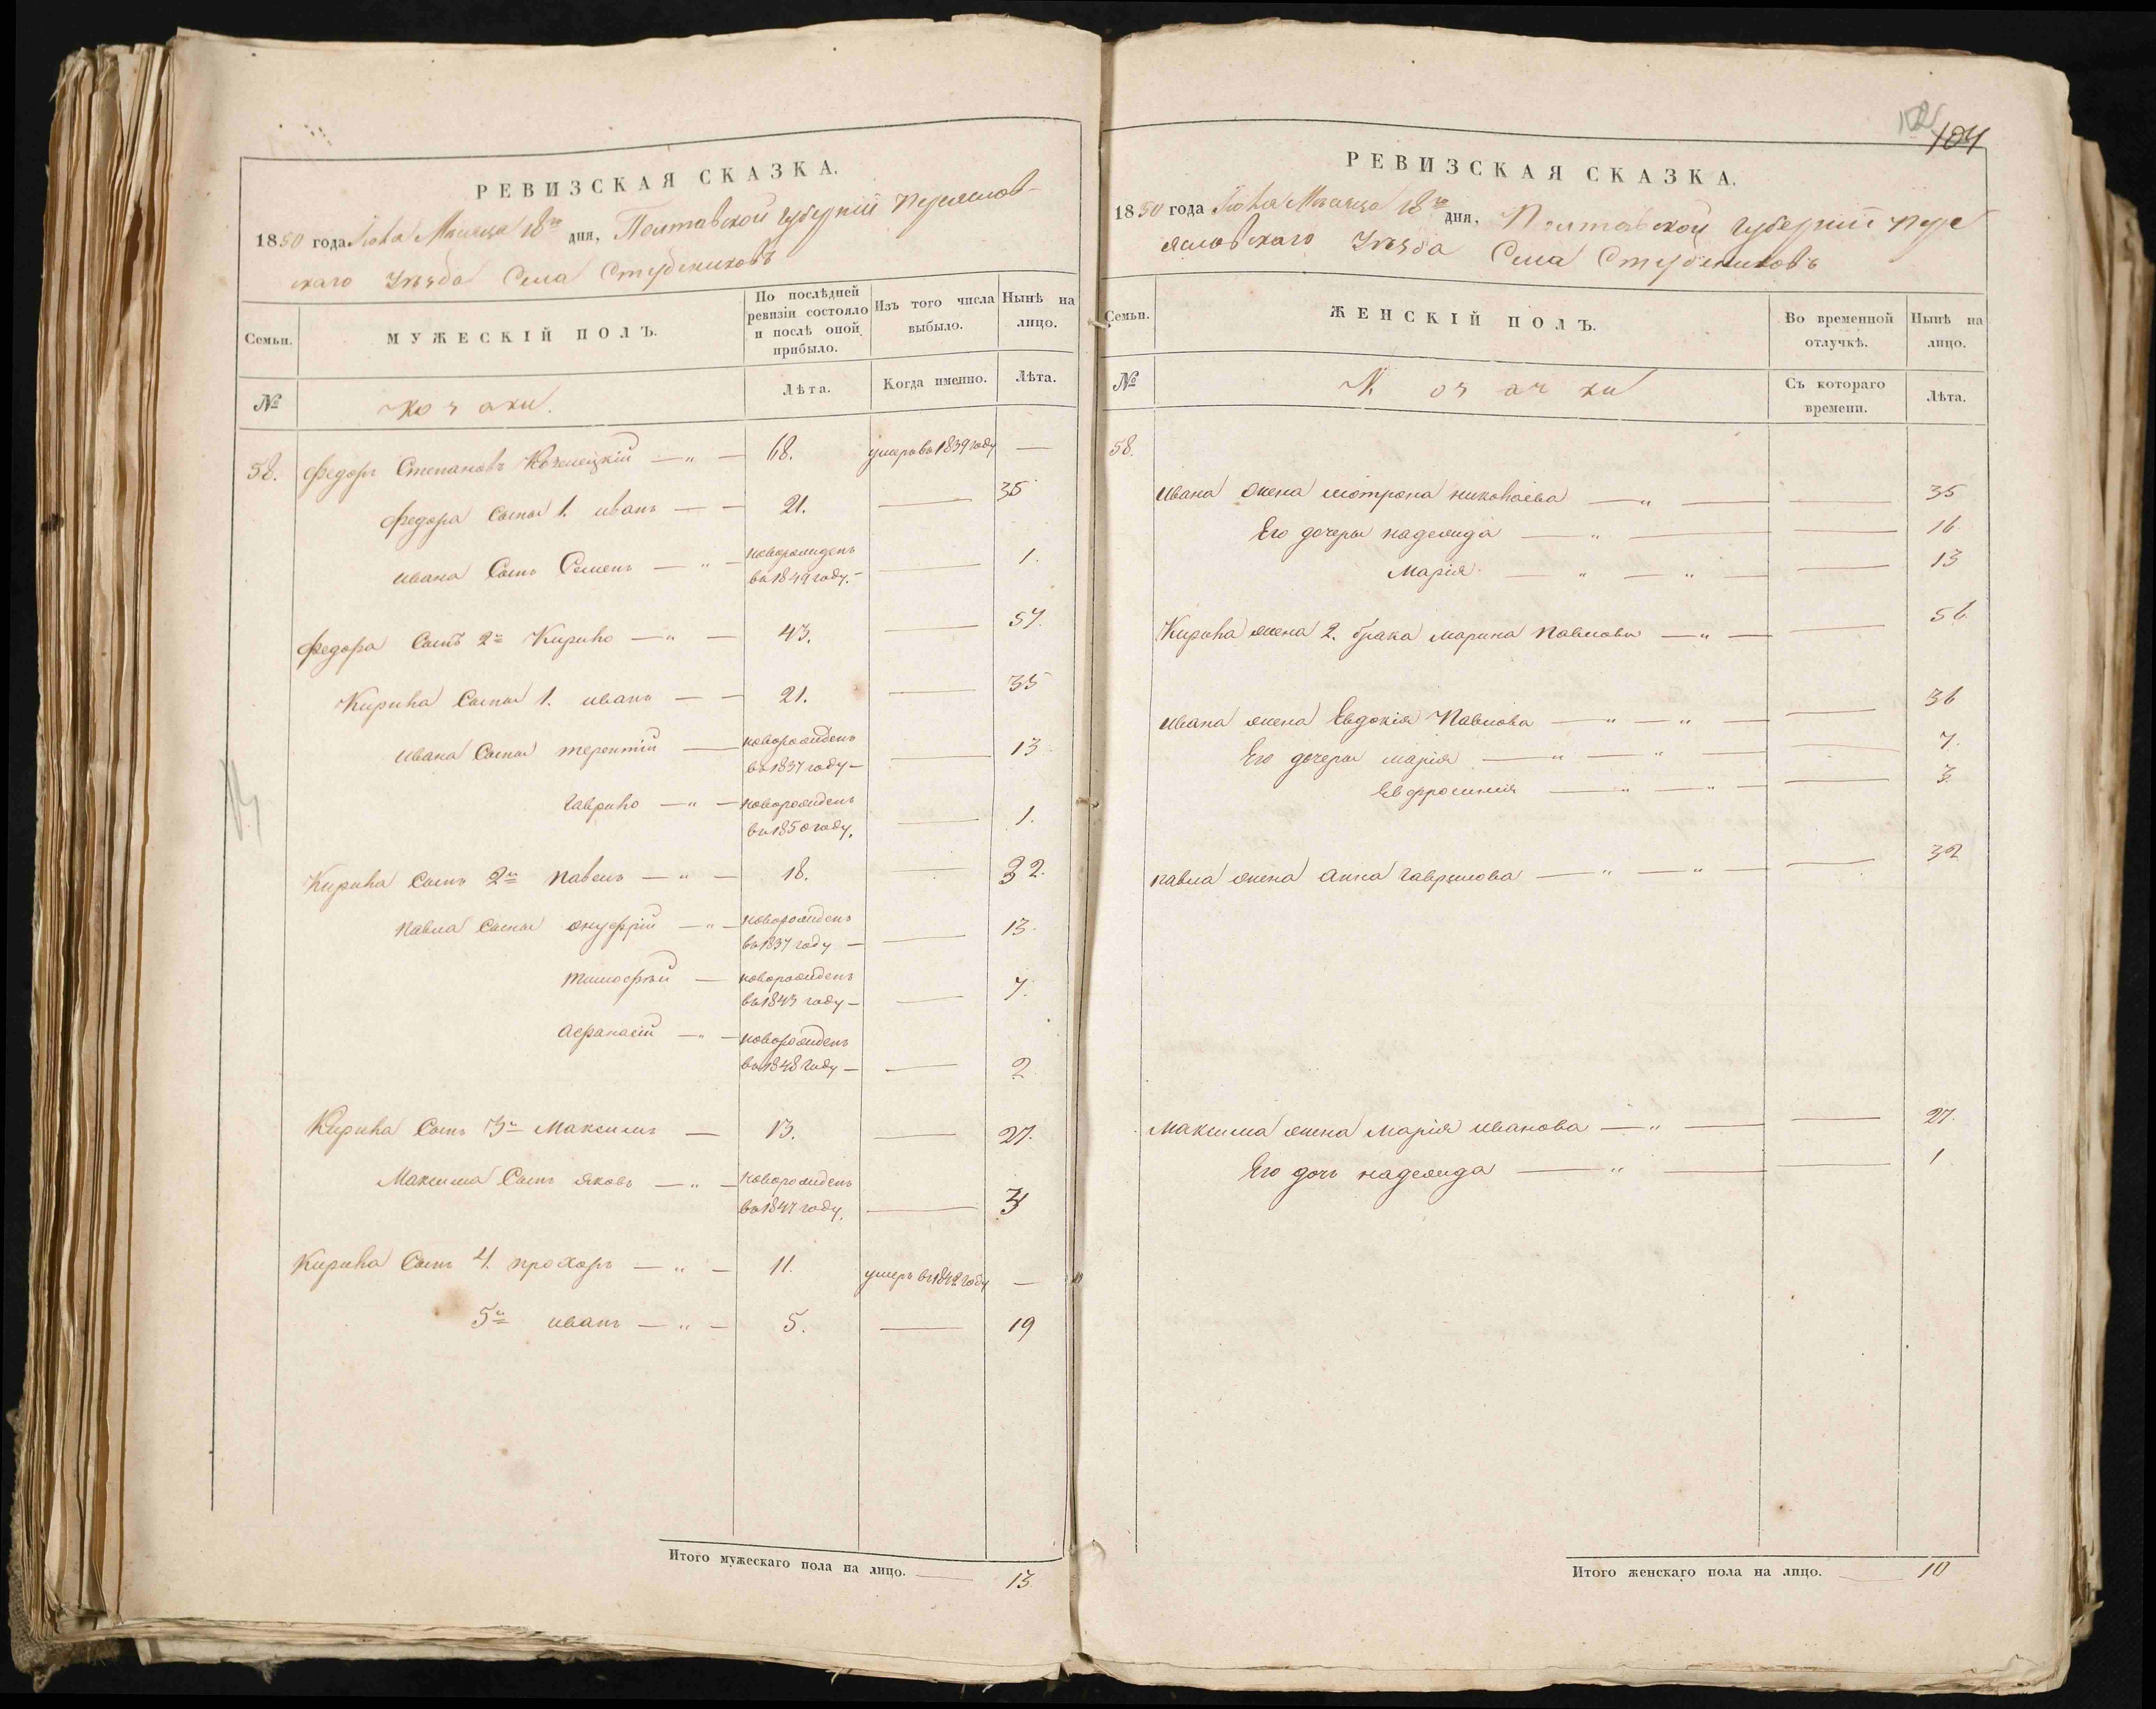 РЕВИЗСКАЯ СКАЗКА.
1850 года Іюля Мѣсяца 18го дня, Полтавской губерніи Переяслов-
скаго Уѣзда Села Студениковъ
Семьи.
МУЖЕСКІЙ ПОЛЪ.
По послѣдней ревизіи состояло и послѣ оной прибыло.
Изъ того числа выбыло.
Нынѣ на лицо.
№
Козаки.
Лѣта.
Когда именно.
Лѣта.
58. Федоръ Степановъ Козелецкій — „ — 68. умеръ въ 1839 году —
Федора Сыны 1. иванъ — — 21. — 35
ивана Сынъ Семенъ — „ — новорожденъ въ 1849 году. — — 1.
Федора Сынъ 2й Кирило — „ — 43. — 57.
Кирила Сыны 1. иванъ — — 21. — 35
ивана Сыны терентій — новорожденъ въ 1837 году — — 13
гаврило — „ — новорожденъ въ 1850 году. — 1.
Кирила Сынъ 2й павелъ — „ — 18. — 32.
павла Сыны онуфрій — „ — новорожденъ въ 1837 году — — 13.
тимофѣй — новорожденъ въ 1843 году — — 7.
афанасій — „ — новорожденъ въ 1848 году — — 2
Кирила Сынъ 3й Максимъ — 13. — 27.
Максима Сынъ яковъ — „ — новорожденъ въ 1847 году. — 3
Кирила Сынъ 4. прохоръ — „ — 11. умеръ въ 1842 году —
5й иванъ — „ — 5. — 19
Итого мужескаго пола на лицо. — 13.
104
РЕВИЗСКАЯ СКАЗКА.
1850 года Іюля Мѣсяца 18го дня, Полтавской губерніи пере
ясловскаго Уѣзда Села Студениковъ
Семьи.
ЖЕНСКІЙ ПОЛЪ.
Во временной отлучкѣ.
Нынѣ на лицо.
№
Козачки
Съ котораго времени.
Лѣта.
58.
Ивана жена мотрона николаева — „ — — 35
Его дочеры надежда — „ — — 16
Марія — „ — „ — — 13
Кирила жена 2. брака марина павлова — „ — — 56.
ивана жена Евдокія Павлова — „ — „ — — 36
Его дочеры марія — „ — „ — — 7.
Евфросинія — „ — „ — — 3.
павла жена анна гаврилова — „ — „ — — 32
максима жена марія иванова — „ — — 27.
Его дочь надежда — „ — — 1
Итого женскаго пола на лицо. — 10